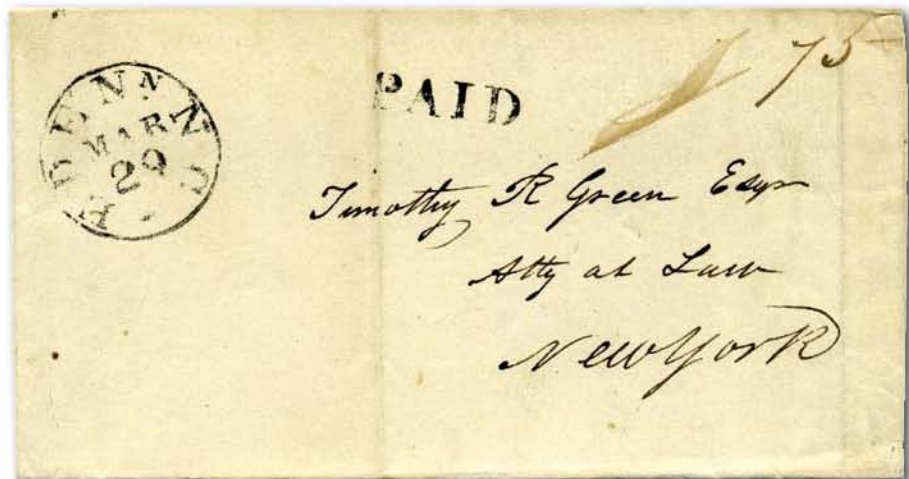 EDEN N N C
MAR
29
PAID
75
Timothy R Green Esqr
Atty at Law
New York